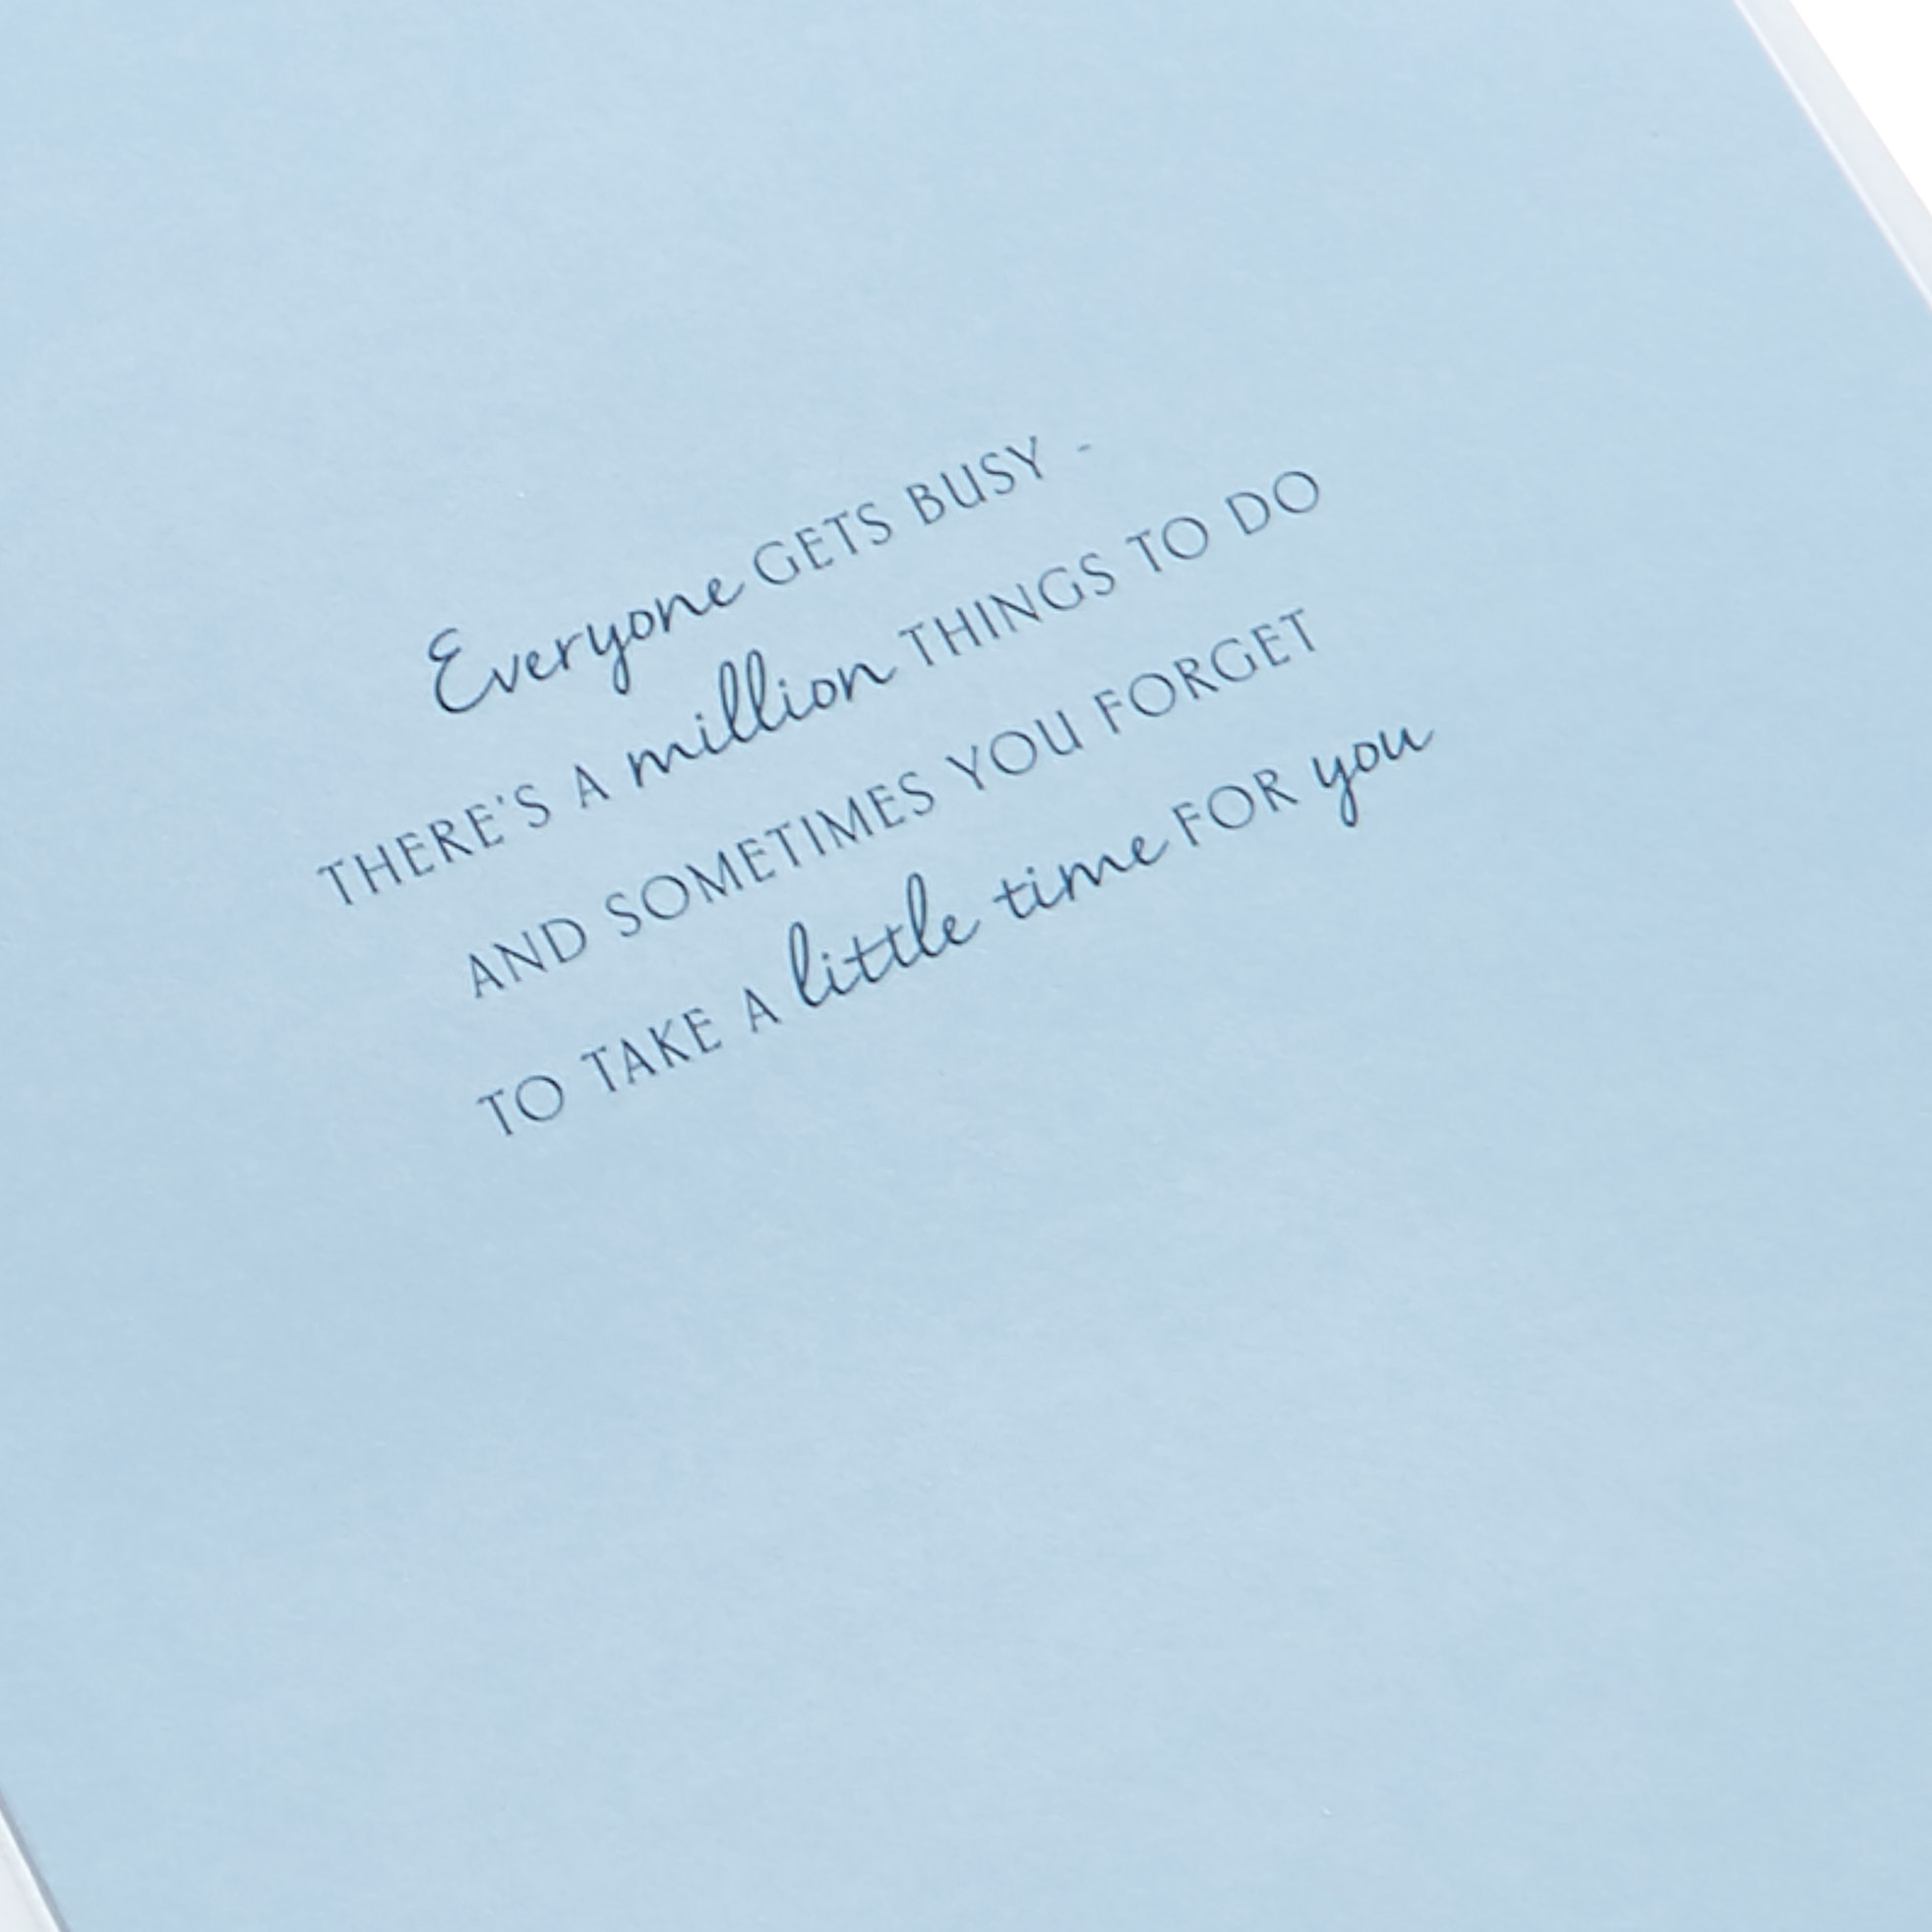 Everyone GETS BUSY -
THERE'S A million THINGS TO DO
AND SOMETIMES YOU FORGET
TO TAKE A little time FOR you